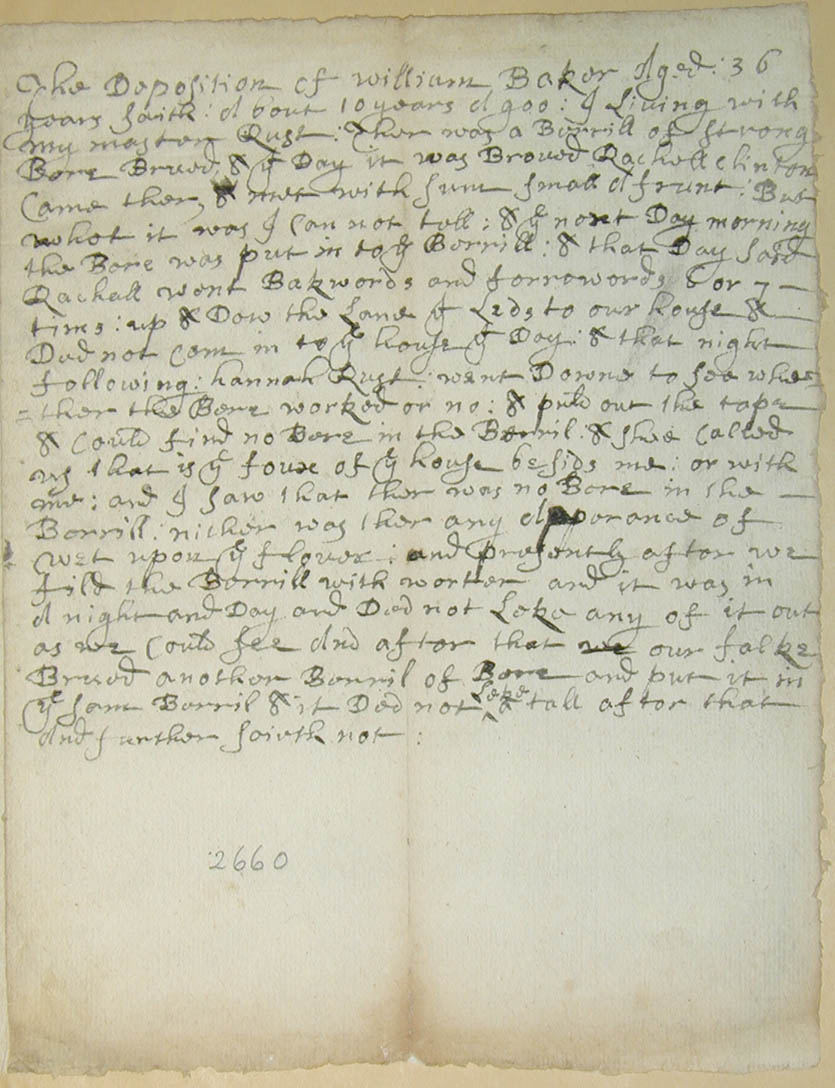 The Deposition of william Baker Aged: 36
years saith: A bout 10 years A goo: I Living with
my master Rust: Ther was a Berrill of strong
Bere Brued, & yͤ Day it was Brewed Rachell Clinton
Came ther, & met with sum small A frunt: But
whot it was I Can not tell: & yͤ next Day morning
the Bere was put in to yͤ Berrill: & that Day said
Rachall went Bakwords and forrowords 6 or 7 -
tims: up & Dow the Lane yͭ Leds to our house & -
Ded not Com in to yͤ house yͭ Day: & that night
following: hannah Rust: went Downe to see whe
=ther the Bere worked or no: & puld out the tape
& Could find no Bere in the Berril: & shee Called
us that is yͤ foure of yͤ house besids me: or with
me: and I saw that ther was no Bere in the -
Berrill: nither was ther any Aporance of
wet upon yͤ flouer: and presently after we
fild the Berrill with worter and it was in
A night and Day and Ded not Leke any of it out
as we Could see And after that we our folke
Brued another Berril of Bere and put it in
yͤ sam Berril & it Ded not Leke A tall after that
And further saieth not:
2660